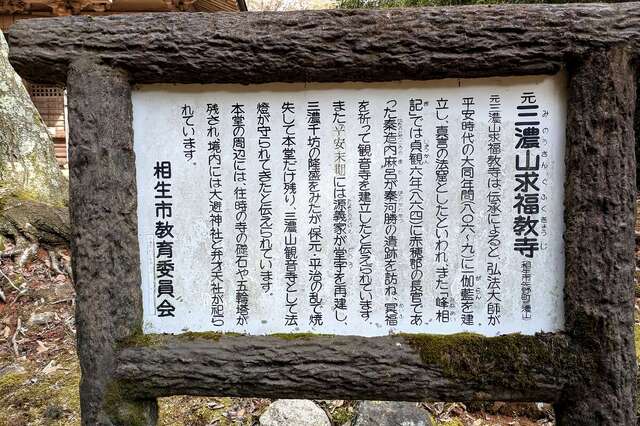 元三濃山求福教寺
みのうさんぐふくきょうじ
(相生市矢野町瓜山)
元三濃山求福教寺は、伝承によると、弘法大師が
平安時代の大同年間(八〇六-九)に伽藍を建
立し、真言の法窟としたといわれ、また「峰相
記」では貞観六年(八六四)に赤穂郡の長官であ
った秦造内麻呂が秦河勝の遺跡を訪ね、冥福
を祈って観音寺を建立したと伝えられています。
また平安末期には源義家が堂宇を再建し、
三濃千坊の隆盛をみたが、保元・平治の乱で焼
失して本堂だけ残り、三濃山観音寺として法
燈が守られてきたと伝えられています。
本堂の周辺には、往時の寺の礎石や五輪塔が
残され、境内には大避神社と弁才天社が祀ら
れています。
相生市教育委員会